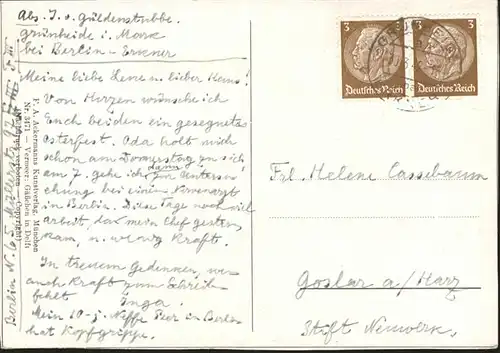 Abs. I. v. Güldenstubbe.
Grünheide i. Mark
bei Berlin - Erkner
Meine liebe Lene u. lieber Hans!
Von Herzen wünsche ich
Euch beiden ein gesegnetes
Osterfest. Ada holt mich
schon am Donnerstag zu sich
am 7. gehe ich dann zur Untersu-
chung bei einem Nervenarzt
in Berlin. Diese Tage noch viel
Arbeit, da mein Chef gestern
kam, u. wenig Kraft.
In treuem Gedenken, wo
auch Kraft zum Schreiben
fehlt Inga.
Mein 10-j. Neffe Peer in Berlin
hat Kopfgrippe.
Berlin N. 65 Müllerstr. 97
F. A. Ackermanns Kunstverlag, München
Nr. 3471 — Vermeer, Gäßchen in Delft
3 3
Deutsches Reich Deutsches Reich
Frl. Helene Cassebaum
Goslar a/Harz
Stift Neuwerk.